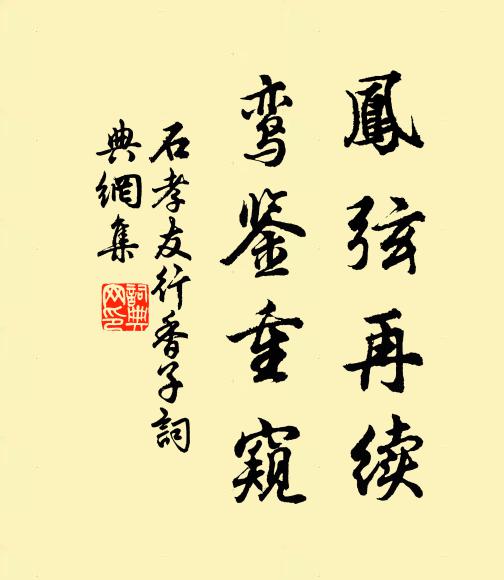 鳳弦再续
鸾鉴重窥
石孝友行香子詞
典網集
詞典网印